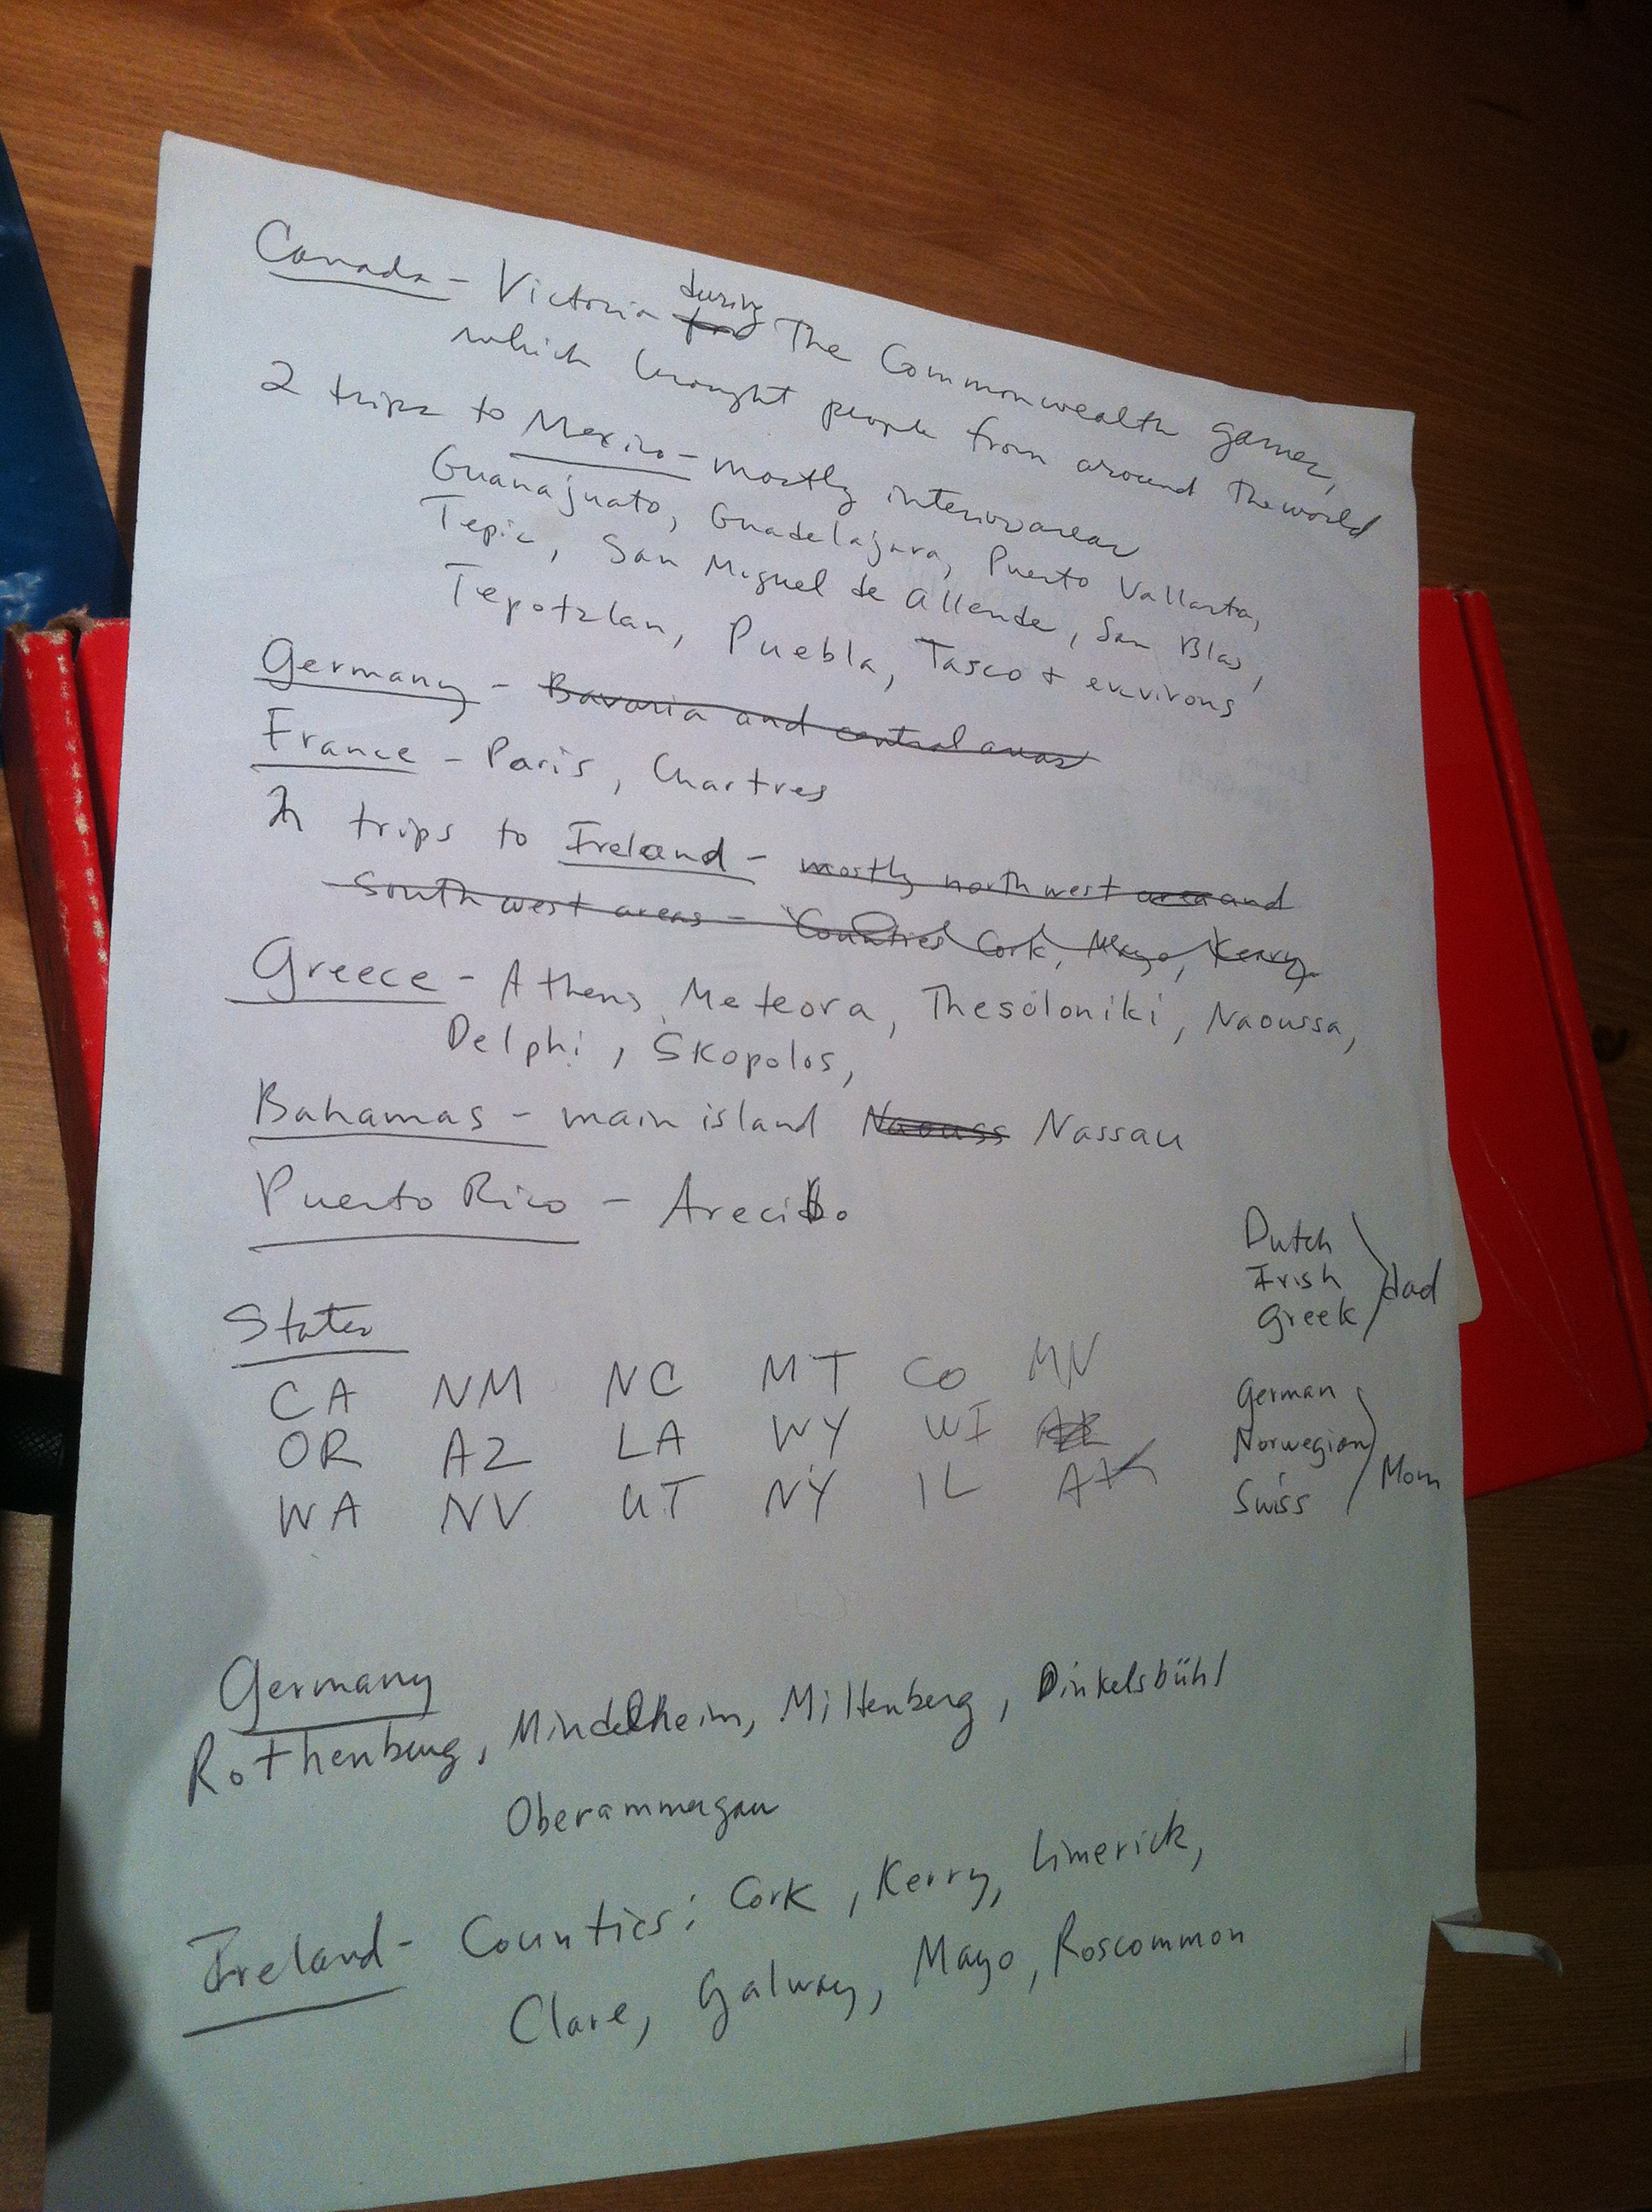 Canada - Victoria during The Commonwealth games,
which brought people from around the world
2 trips to Mexico - mostly interior areas
Guanajuato, Guadelajara, Puerto Vallarta,
Tepic, San Miguel de Allende, San Blas,
Tepotzlan, Puebla, Tasco + environs
Germany - Bavaria and central areas
France - Paris, Chartres
2 trips to Ireland - mostly northwest area and
southwest areas - Counties Cork, Mayo, Kerry
Greece - Athens, Meteora, Thesoloniki, Naoussa,
Delphi, Skopolos,
Bahamas - main island Naouss Nassau
Puerto Rico - Arecibo
Dutch
Irish
Greek
dad
States
CA NM NC MT CO MN
OR AZ LA WY WI
WA NV UT NY IL AK
German
Norwegian
Swiss
Mom
Germany
Rothenburg, Mindelheim, Miltenberg, Dinkelsbühl
Oberammergau
Ireland - Counties: Cork, Kerry, Limerick,
Clare, Galway, Mayo, Roscommon